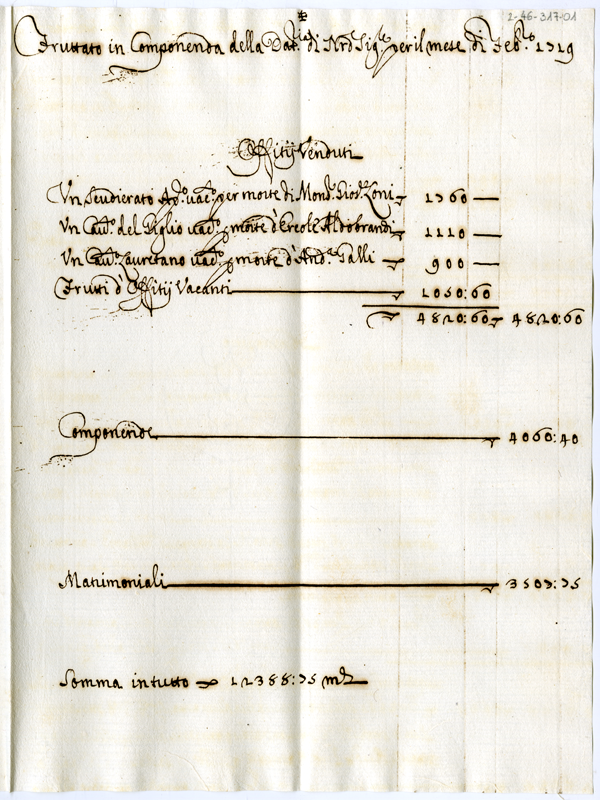 2-46-317-01
Fruttato in Componenda della Dat.ria di Nro Sig.re per il mese di Feb.ro 1719
Offitij Venduti
Un Scudierato Ap.o vac.o per morte di Mons. Giod. Zoni 1760
Un Cau.o del Giglio vac.o p morte d'Ercole Aldobrandi 1110
Un Cau.o Lauretano vac.o p morte d'And.a Galli 900
Frutti d'Offitij Vacanti 1050:60
4820:60 4820:60
Componende 4060:40
Matrimoniali 3507:75
Somma in tutto 12388:75 mta